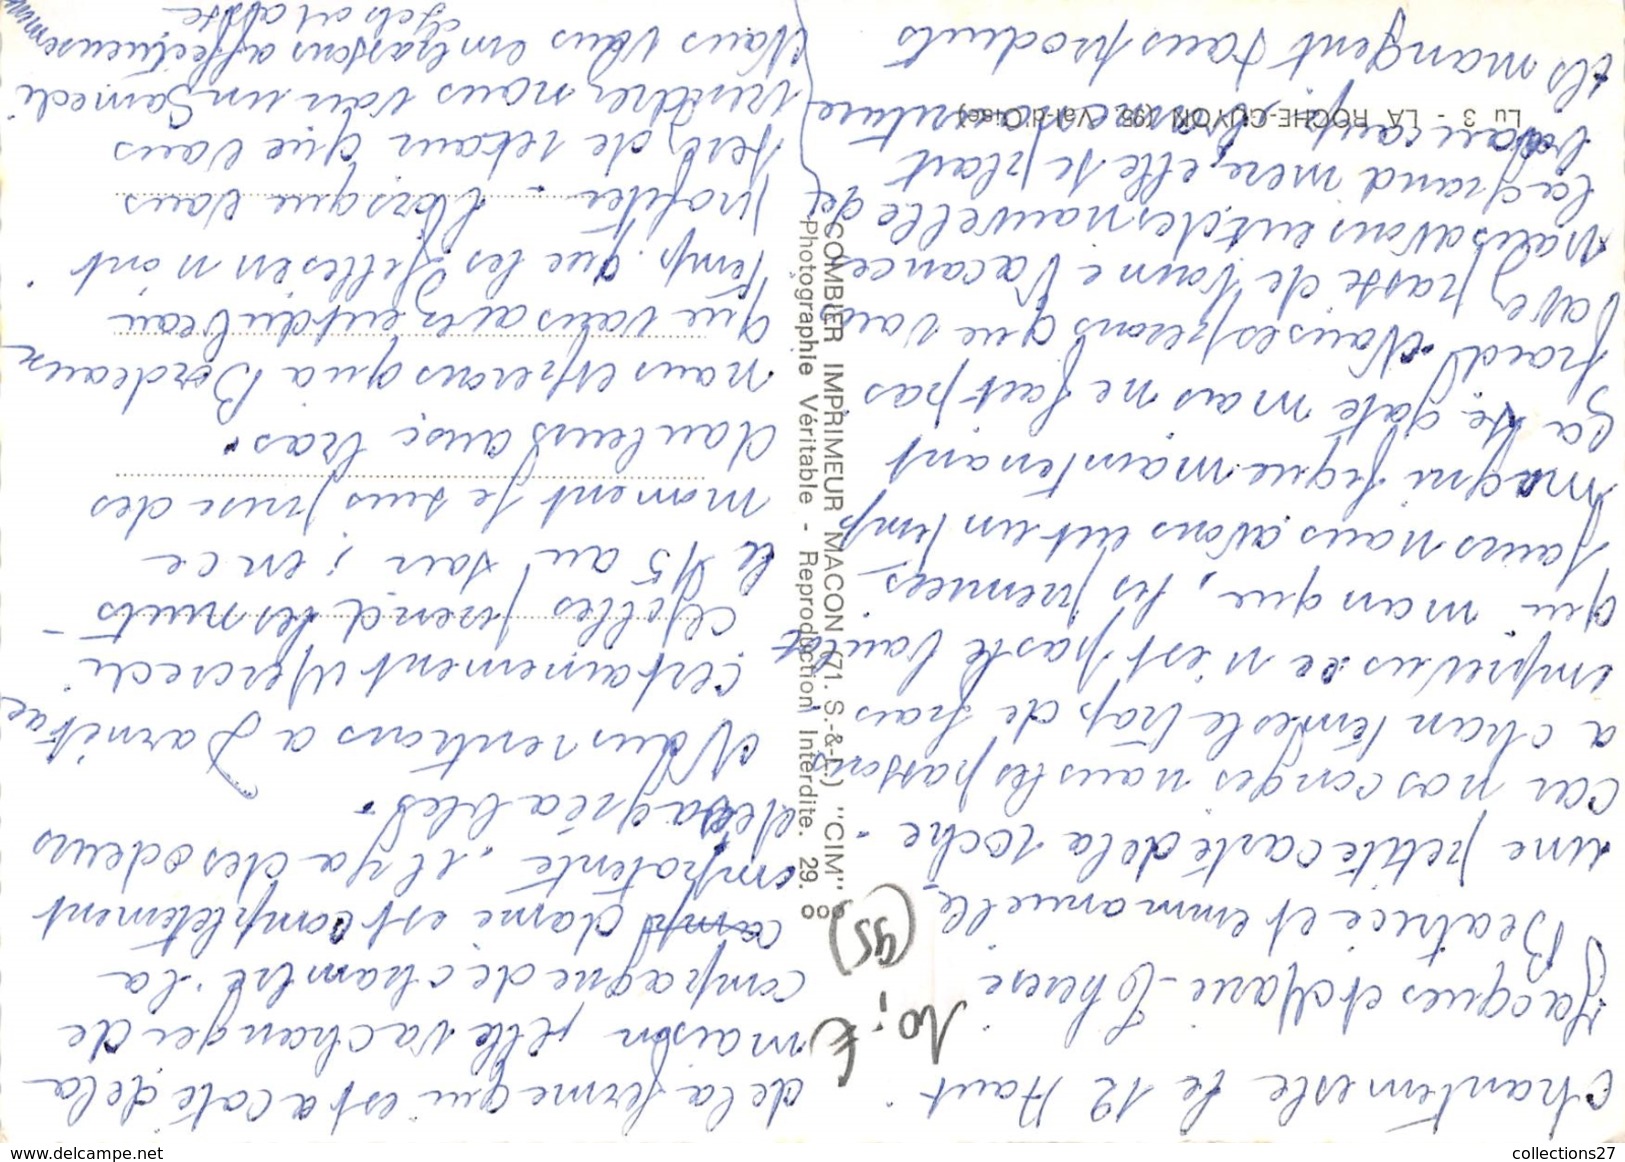 Chantemesle le 12 Aout
Jacques et Marie-Therese
Beatrice et emmanuelle,
une petite carte de la roche -
car nos conges nous les passons
a chantemesle trop de frais
imprevus ce n'est pas le travail
qui manque, les premiers
jours nous avons eut un temp
magnifique maintenant
ça se gate mais ne fait pas
froid. Nous esperons que vous
avez passé de bonne vacances
nous avons eut des nouvelle de
la grand mere, elle se plait
beaucoup, la nourriture
Lu 3 - LA ROCHE-GUYON (95 - Val-d'Oise)
ils mangent tous produits
10,- €
(95)
COMBIER IMPRIMEUR MACON (71. S.-&-L.) "CIM"
Photographie Véritable - Reproduction Interdite. 29.
de la ferme qui est a coté de la
maison, elle va changer de
compagne de chambre. la
comp dame est completement
impotente. il y a des odeurs
desagréables.
Nous rentrons a Darnétal
certainement Mercredi
Gilles prend les nuits -
le 15 au soir ; en ce
moment je suis prise des
douleurs aux bras.
nous esperons qu'a Bordeaux
que vous avez eut du beau
temp. que les filles en n'ont
profiter - lorsque vous
serez de retour que vous
viendrez nous voir un samedi
Nous vous embrassons affectueusement
collections27